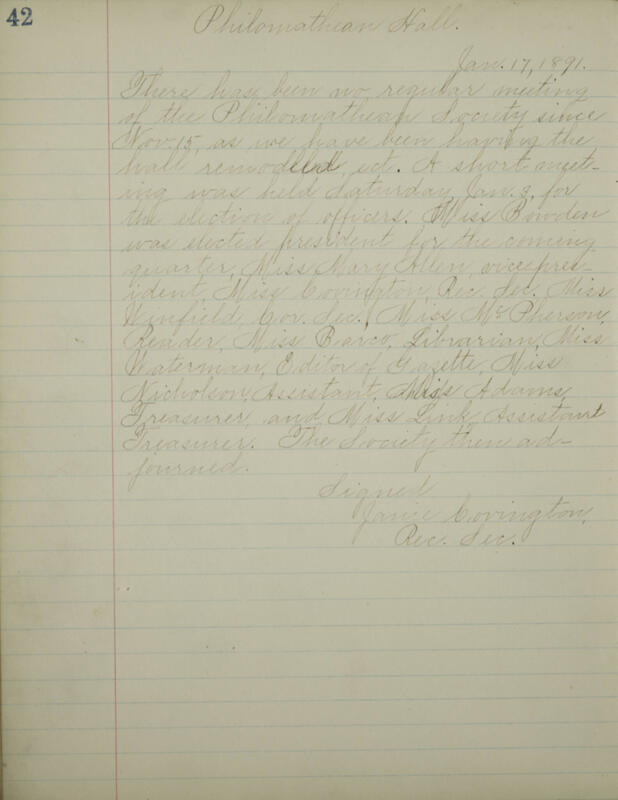 42
Philomathean Hall.
Jan. 17, 1891.
There has been no regular meeting
of the Philomathean Society since
Nov. 15, as we have been having the
hall remodled, ect. A short meet-
ing was held Saturday, Jan. 3, for
the election of officers. Miss Bowden
was elected president for the coming
quarter, Miss Mary Allen, vice pres-
ident, Miss Covington, Rec. Sec. Miss
Winfield Cor. Sec., Miss McPherson,
Reader, Miss Barco, Librarian, Miss
Waterman, Editor of Gazette, Miss
Nicholson, Assistant, Miss Adams,
Treasurer, and Miss Link, Assistant
Treasurer. The Society then ad-
journed.
Signed
Janie Covington,
Rec. Sec.